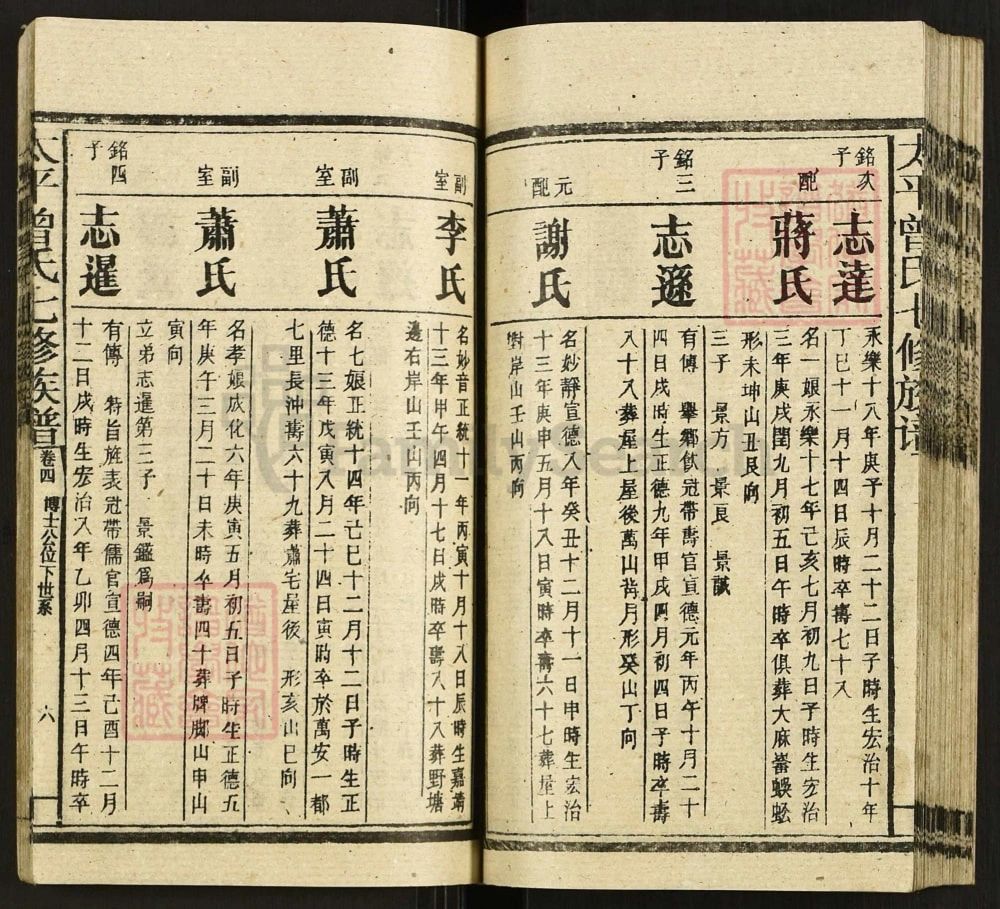 太平曾氏七修族譜
銘次子
志達
永樂十八年庚子十月二十二日子時生宏治十年
丁巳十一月十四日辰時卒壽七十八
配
蔣氏
名一娘永樂十七年己亥七月初九日子時生宏治
三年庚戌閏九月初五日午時卒俱葬大麻崙蜈蚣
形未坤山丑艮向
三子 景方 景良 景誠
銘三子
志遜
有傳 舉鄉飲冠帶壽官宣德元年丙午十月二十
四日戌時生正德九年甲戌四月初四日子時卒壽
八十八葬屋上屋後萬山背月形癸山丁向
元配
謝氏
名妙靜宣德八年癸丑十二月十一日申時生宏治
十三年庚申五月十八日寅時卒壽六十七葬屋上
對岸山壬山丙向
副室
李氏
名妙音正統十一年丙寅十月十八日辰時生嘉靖
十三年甲午四月十七日戌時卒壽八十八葬野塘
邊右岸山壬山丙向
副室
蕭氏
名七娘正統十四年己巳十二月十二日子時生正
德十三年戊寅八月二十四日寅時卒於萬安一都
七里長沖壽六十九葬蕭宅屋後 形亥山巳向
副室
蕭氏
名孝娘成化六年庚寅五月初五日子時生正德五
年庚午三月二十日未時卒壽四十葬牌腳山申山
寅向
立弟志暹第三子 景鑑爲嗣
銘四子
志暹
有傳 特旨旌表冠帶儒官宣德四年己酉十二月
十二日戌時生宏治八年乙卯四月十三日午時卒
太平曾氏七修族譜 卷四 博士公位下世系 六
FamilySearch